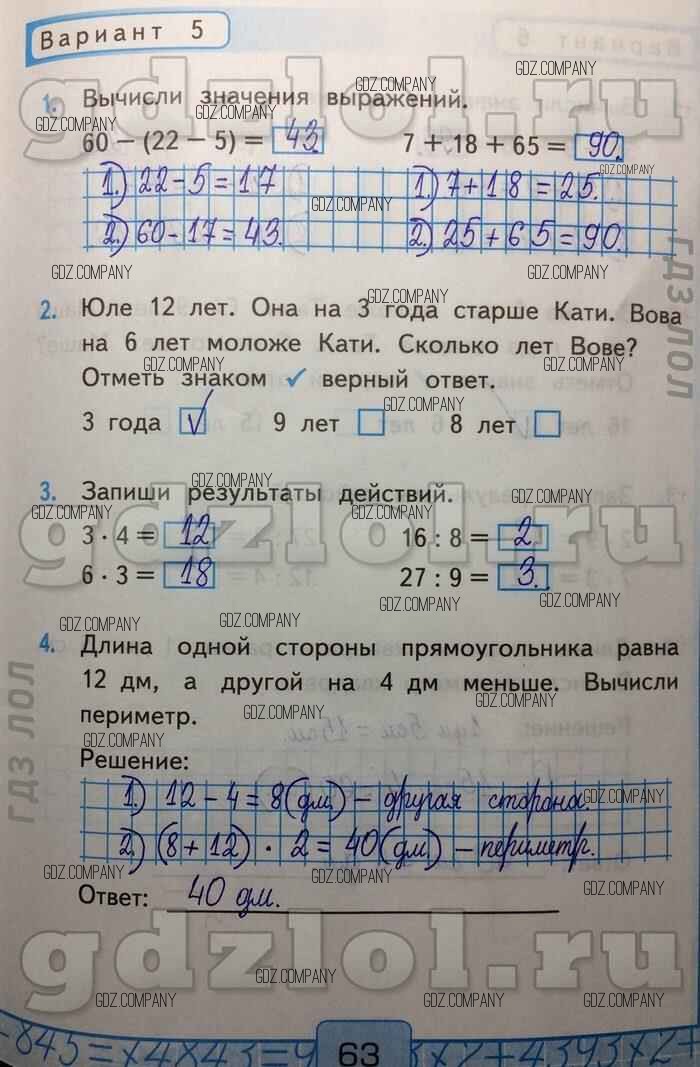 Вариант 5
1. Вычисли значения выражений.
60 − (22 − 5) = 43. 7 + 18 + 65 = 90.
1.) 22-5=17 1.) 7+18=25.
2.) 60-17=43. 2.) 25+65=90.
2. Юле 12 лет. Она на 3 года старше Кати. Вова
на 6 лет моложе Кати. Сколько лет Вове?
Отметь знаком ✓ верный ответ.
3 года ✓ 9 лет 8 лет
3. Запиши результаты действий.
3 · 4 = 12 16 : 8 = 2.
6 · 3 = 18 27 : 9 = 3.
4. Длина одной стороны прямоугольника равна
12 дм, а другой на 4 дм меньше. Вычисли
периметр.
Решение:
1.) 12-4=8(дм.) - другая сторона.
2.) (8+12) · 2=40(дм) - периметр.
Ответ: 40 дм.
63
gdzlol.ru
gdzlol.ru
gdzlol.ru
ГДЗ ЛОЛ
ГДЗ ЛОЛ
GDZ.COMPANY